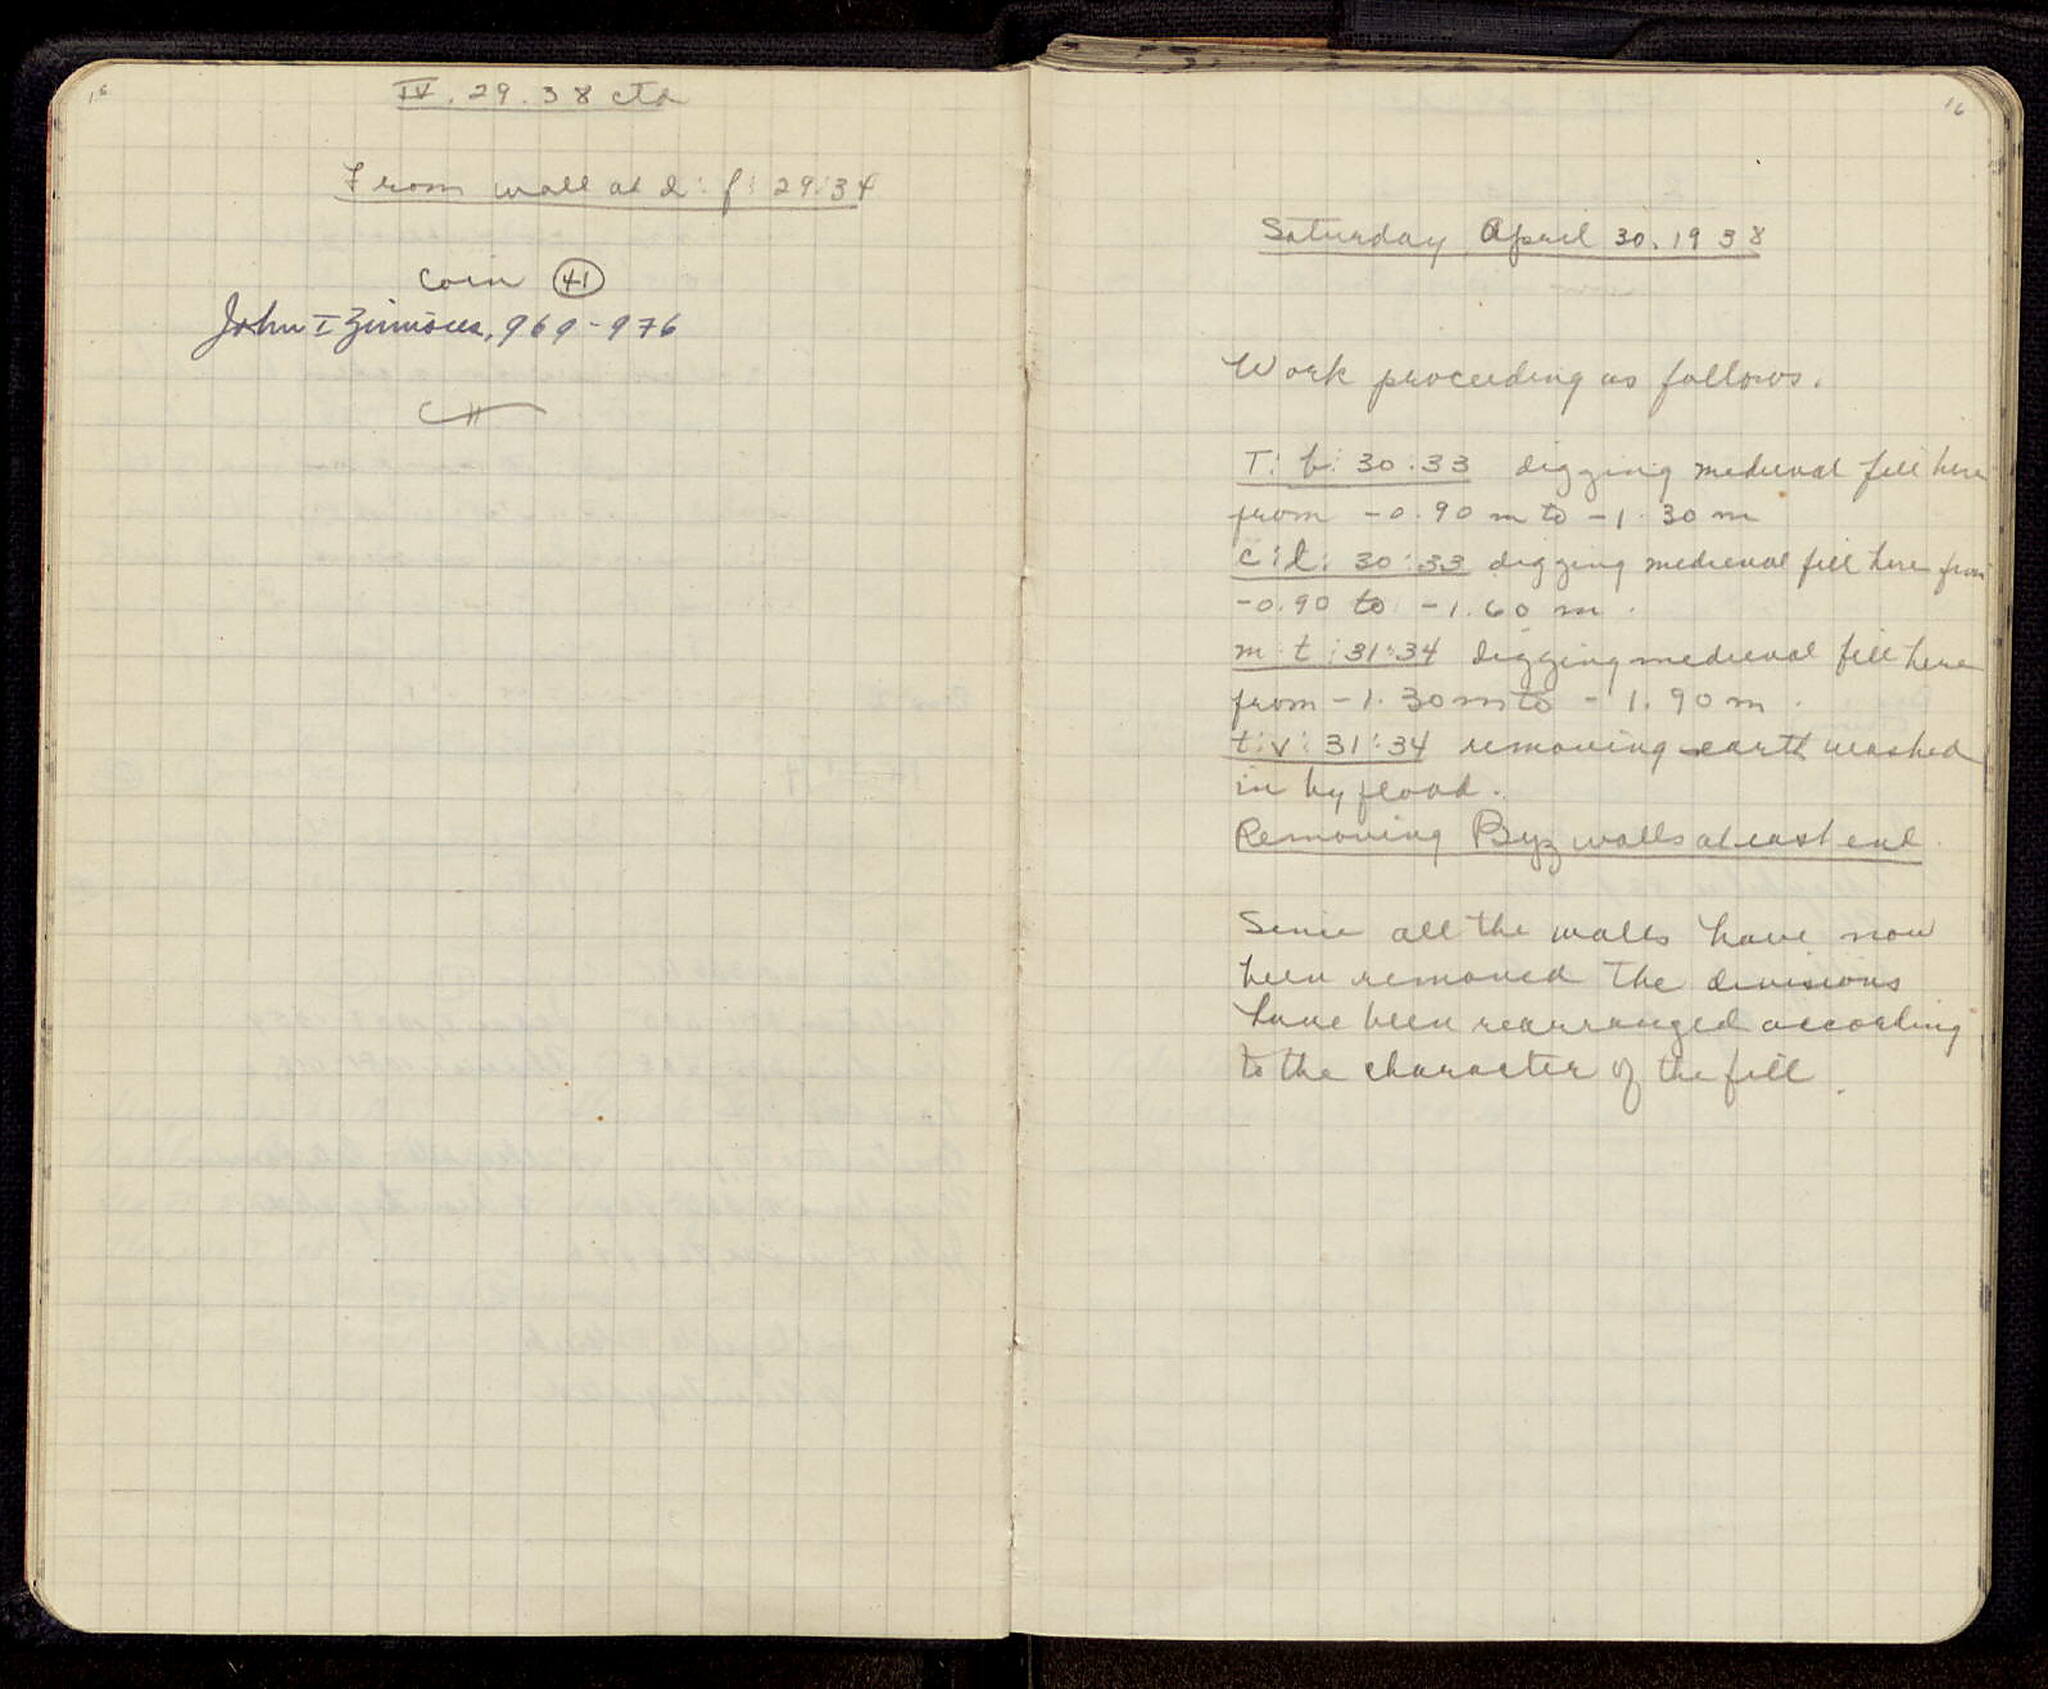 15
IV. 29. 38 ctd
From wall at d : f : 29:34
Coin 41
John I Zimisces, 969-976
16
Saturday April 30. 1938
Work proceeding as follows.
T: b: 30:33 digging medieval fill here
from -0.90 m to -1.30 m
c: l: 30:33 digging medieval fill here from
-0.90 to -1.60 m.
m: t: 31:34 digging medieval fill here
from -1.30 m to -1.90 m.
t: v: 31:34 removing earth washed
in by flood.
Removing Byz walls at east end
Since all the walls have now
been removed the divisions
have been rearranged according
to the character of the fill.